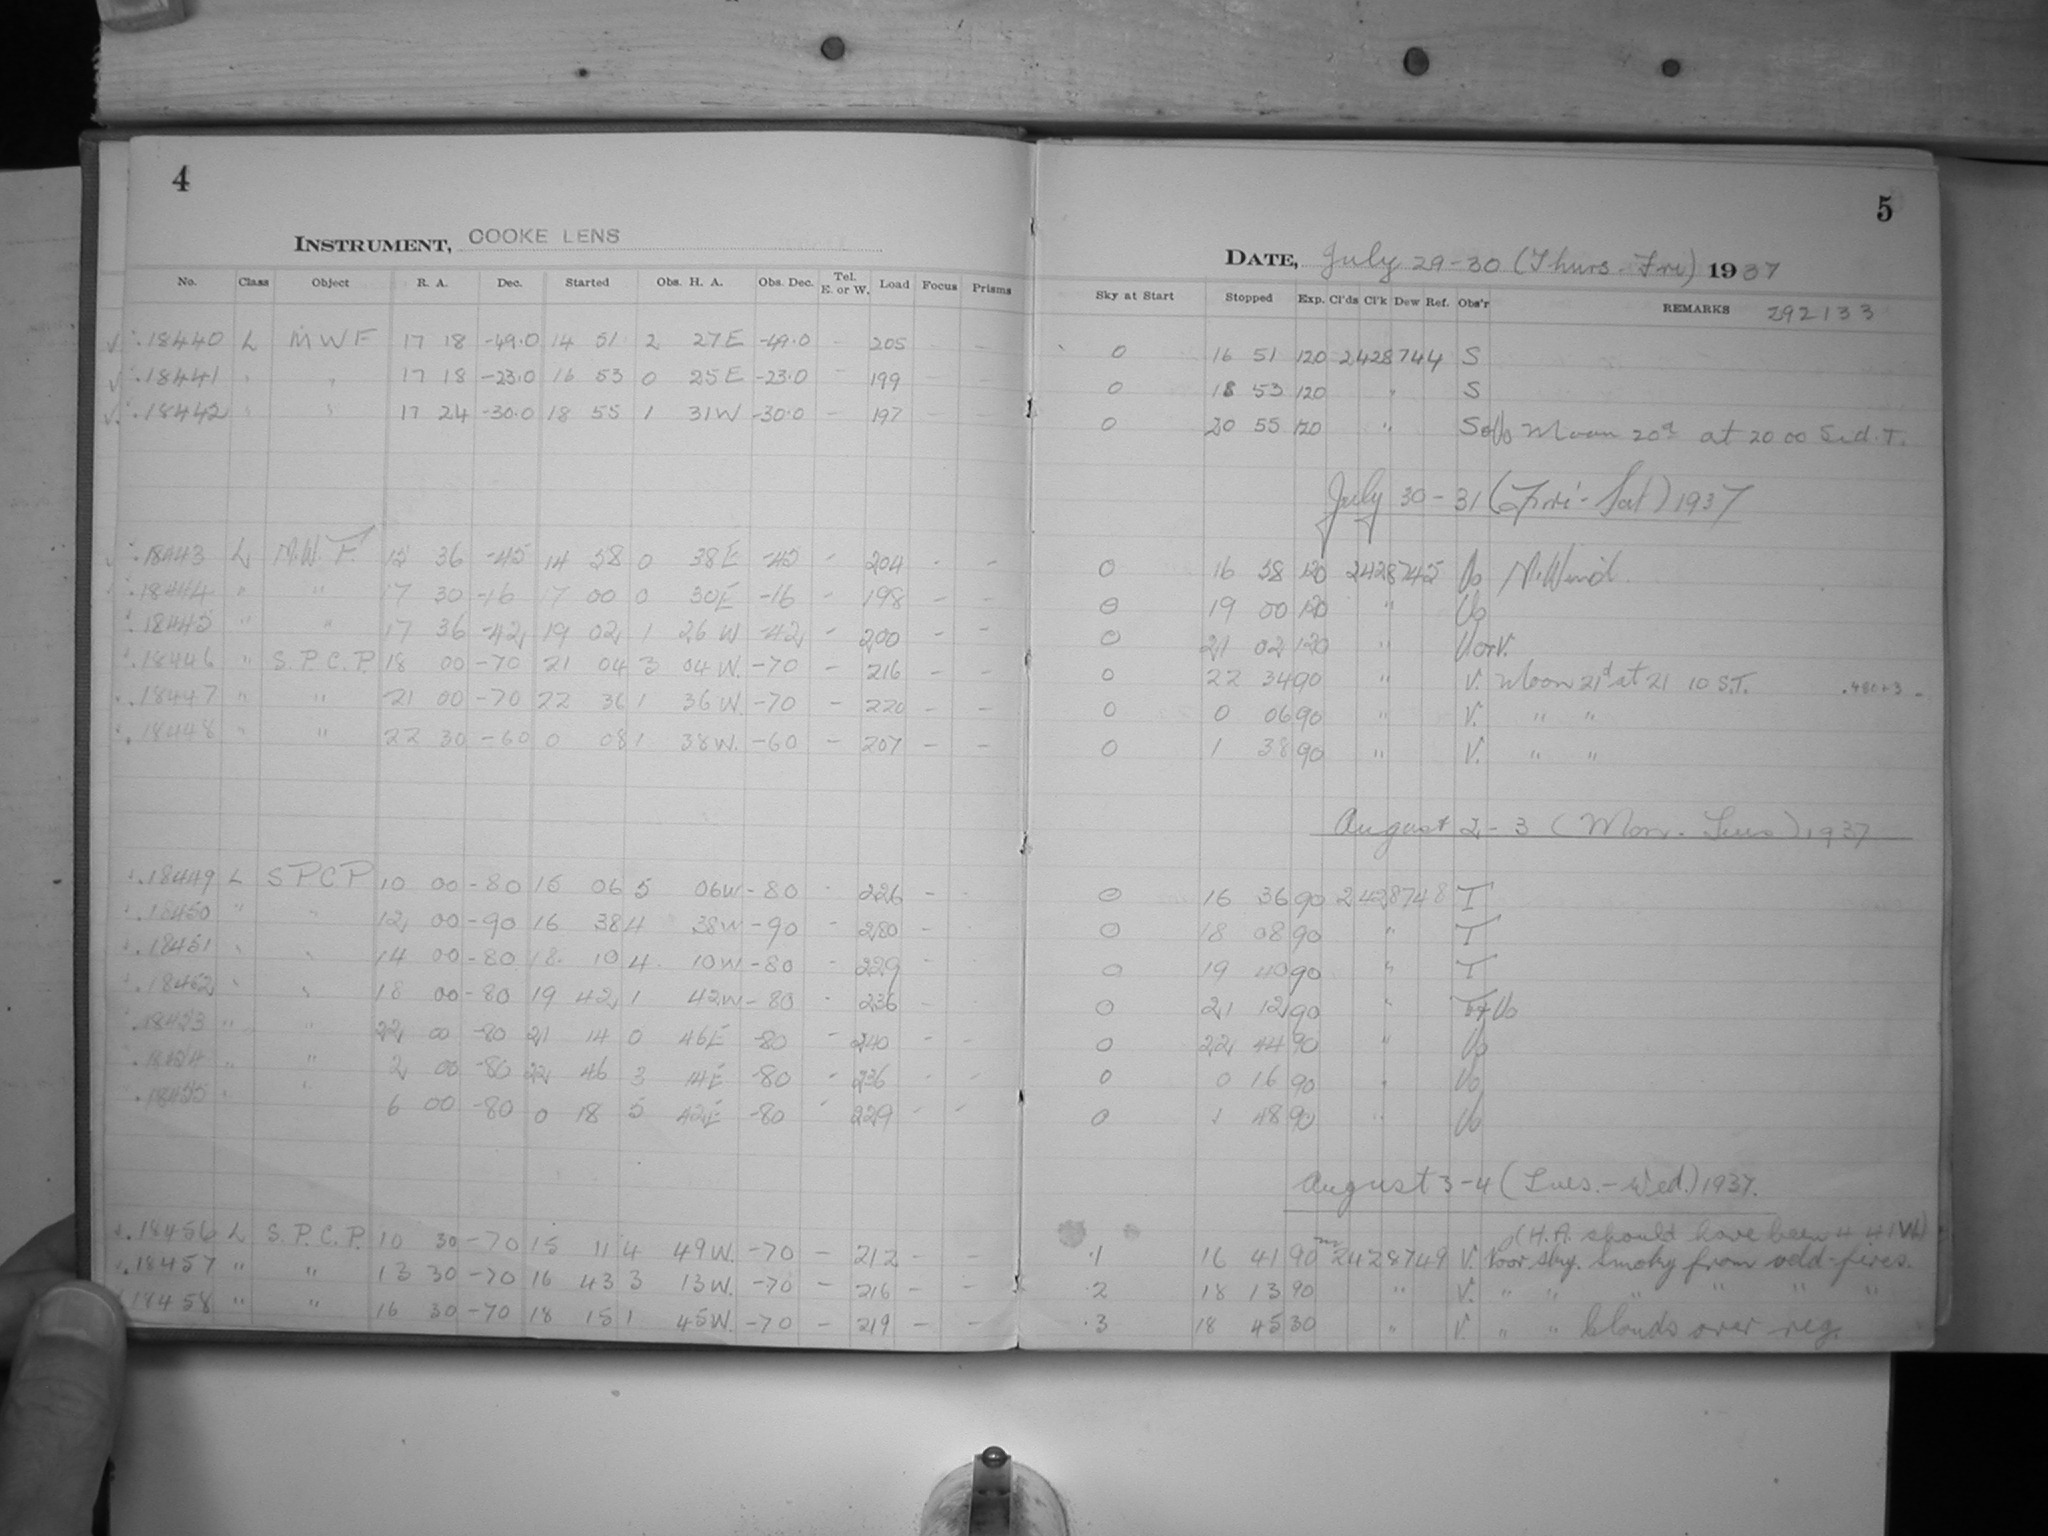 4
INSTRUMENT, COOKE LENS
No. Class Object R. A. Dec. Started Obs. H. A. Obs. Dec. Tel. E. or W. Load Focus Prisms
18440 L MWF 17 18 -49.0 14 51 2 27E -49.0 - 205 - -
18441 " " 17 18 -23.0 16 53 0 25E -23.0 - 199 - -
18442 " " 17 24 -30.0 18 55 1 31W -30.0 - 197 - -
18443 L M.W.F. 36 -45 14 58 0 38E -45 - 204 - -
18444 " " 17 30 -16 17 00 0 30E -16 - 198 - -
18445 " " 17 36 -42 19 02 1 26 W -42 - 200 - -
18446 " S.P.C.P. 18 00 -70 21 04 3 04W. -70 - 216 - -
18447 " " 21 00 -70 22 36 1 36W. -70 - 220 - -
18448 " " 22 30 -60 0 08 1 38W. -60 - 207 - -
18449 L SPCP 10 00 -80 15 06 5 06W -80 - 226 -
18450 " " 12 00 -90 16 38 4 38W -90 - 280 -
18451 " " 14 00 -80 18 10 4 10W -80 - 229 -
18452 " " 18 00 -80 19 42 1 42W -80 - 236 -
18453 " " 22 00 -80 21 14 0 46E -80 240 - -
18454 " " 2 00 -80 22 46 3 14E -80 - 236 - -
18455 " " 6 00 -80 0 18 5 42E -80 - 229 - -
18456 L S.P.C.P. 10 30 -70 15 11 4 49W. -70 - 212 - -
18457 " " 13 30 -70 16 43 3 13W. -70 - 216 - -
18458 " " 16 30 -70 18 15 1 45W. -70 - 219 - -
5
DATE, July 29-30 (Thurs-Fri) 1937
Sky at Start Stopped Exp. Cl'ds Cl'k Dew Ref. Obs'r REMARKS 292133
0 16 51 120 2428744 S
0 18 53 120 " S
0 20 55 120 " Moon 20d at 20 00 Sid. T.
July 30-31 (Fri-Sat) 1937
0 16 58 120 2428745 Uo N. Wind
0 19 00 120 " Uo
0 21 02 120 "
0 22 34 90 " V. Moon 21d at 21 10 S.T.
0 0 06 90 " V. " "
0 1 38 90 " V. " "
August 2-3 (Mon-Tues) 1937
0 16 36 90 2428748 T
0 18 08 90 " T
0 19 40 90 " T
0 21 12 90 " T+Uo
0 22 44 90 " Uo
0 0 16 90 " Uo
0 1 48 90 " Uo
August 3-4 (Tues.-Wed.) 1937.
(H.A. should have been 4 41W)
.1 16 41 90m 2428749 V. Poor sky. Smoky from veld-fires.
.2 18 13 90 " V. " " " " " "
.3 18 45 30 " V. " " Clouds over reg.